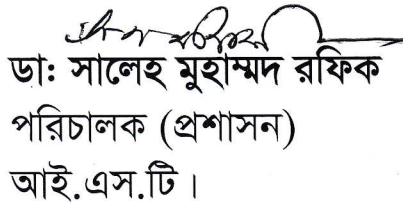 ডা: সালেহ মুহাম্মদ রফিক
পরিচালক (প্রশাসন)
আই.এস.টি।